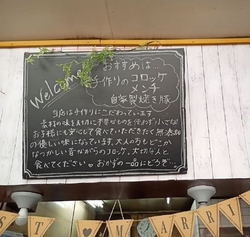 Welcome
おすすめは
手作りのコロッケ
メンチ
自家製焼き豚
当店は手作りにこだわっています
素材の味を大切に余分なものを使わず小さな
お子様にも安心して食べていただきたく無添加
の優しい味になっています。大人の方もどこか
なつかしい昔ながらのコロッケ、大切な人と
食べてください。おかずの一品にどうぞ…
ST MARRI